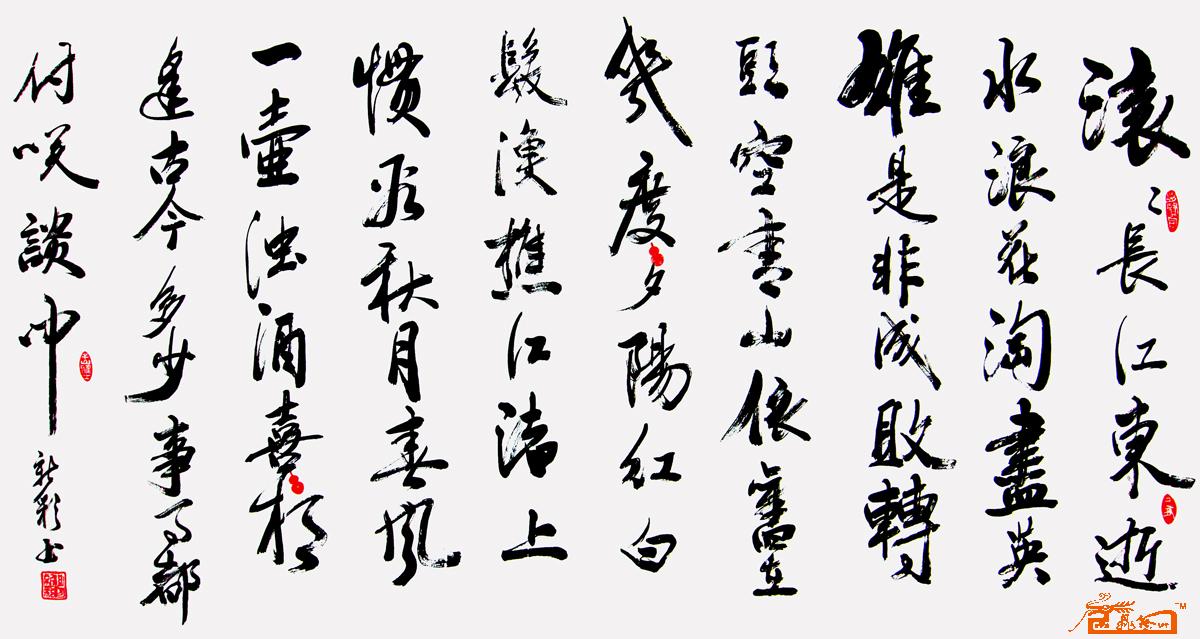 滚〻長江東逝
水浪花淘盡英
雄是非成敗轉
頭空青山依舊在
幾度夕陽紅白
髮漁樵江渚上
慣看秋月春風
一壺浊酒喜相
逢古今多少事都
付笑談中
新彩书